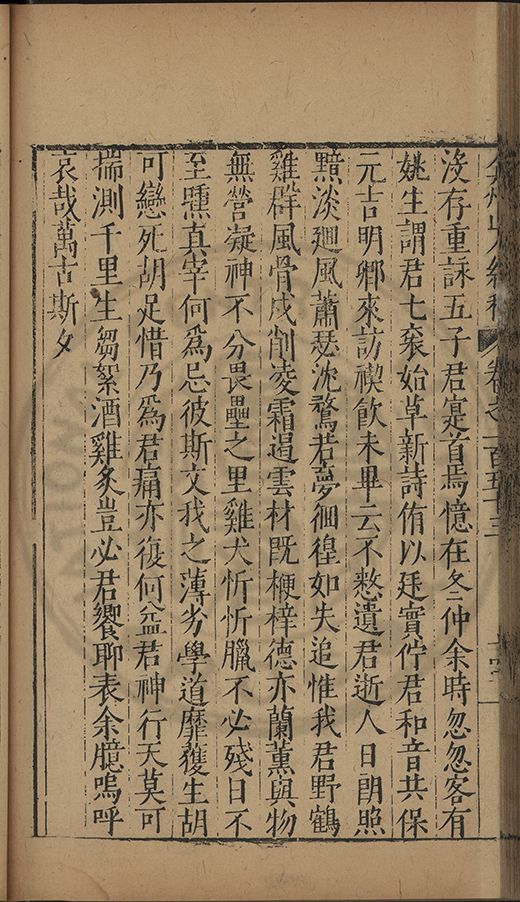 弇州山人續稿 卷之一百五十三
沒存重詠五子君寔首焉憶在冬仲余時忽忽客有
姚生謂君七袠始草新詩侑以廷實佇君和音共保
元吉明卿來訪禊飲未畢云不憗遺君逝人日朗照
黯淡廻風蕭瑟沈鶩若夢徊徨如失追惟我君野鶴
雞群風骨成削凌霜遏雲材旣梗梓德亦蘭薰與物
無營凝神不分畏壘之里雞犬忻忻臘不必殘日不
至曛真宰何爲忌彼斯文我之薄劣學道靡獲生胡
可戀死胡足惜乃爲君痛亦復何益君神行天莫可
揣測千里生芻絮酒雞炙豈必君饗聊表余臆嗚呼
哀哉萬古斯夕